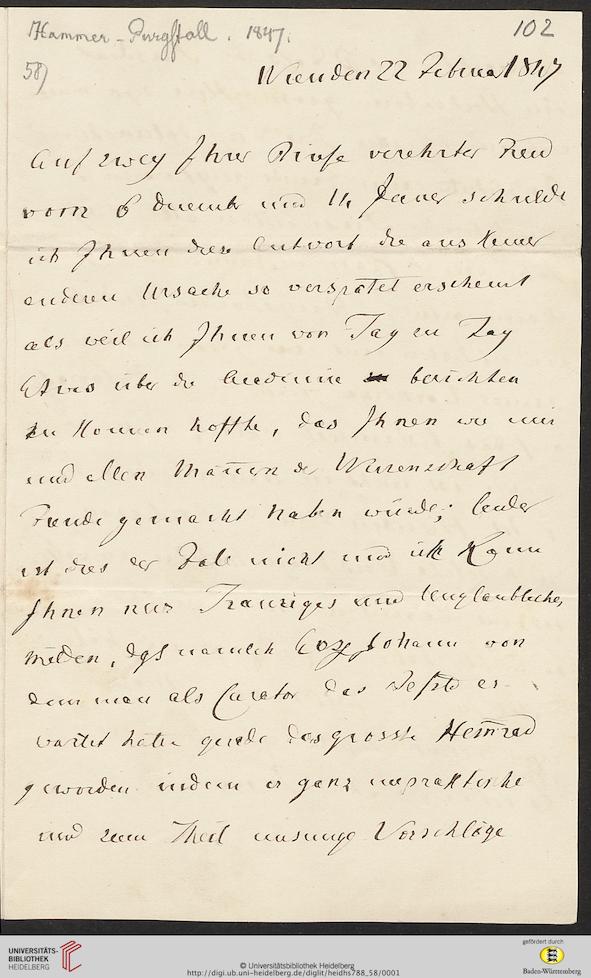 Hammer-Purgstall. 1847.
102
58)
Wien den 22 Februar 1847
Auf zwey Ihrer Briefe verehrter Freund
vom 6 Decemb und 14 Jäner schulde
ich Ihnen diese Antwort die aus keiner
anderen Ursache so verspätet erscheint
als weil ich Ihnen von Tag zu Tag
Etwas über die Academie berichten
zu können hoffte, das Ihnen wie mir
und allen Männern der Wissenschaft
Freude gemacht haben würde; leider
ist dies der Fall nicht und ich kann
Ihnen nur Trauriges und Unglaubliches
melden, daß nämlich Erzh Johann von
dem man als Curator das Beste er-
wartet hatte gerade das grosste Hem̅rad
geworden indem er ganz unpraktische
und zum Theil unsinnige Vorschläge
UNIVERSITÄTS-
BIBLIOTHEK
HEIDELBERG
© Universitätsbibliothek Heidelberg
http://digi.ub.uni-heidelberg.de/diglit/heidhs788_58/0001
gefördert durch
Baden-Württemberg